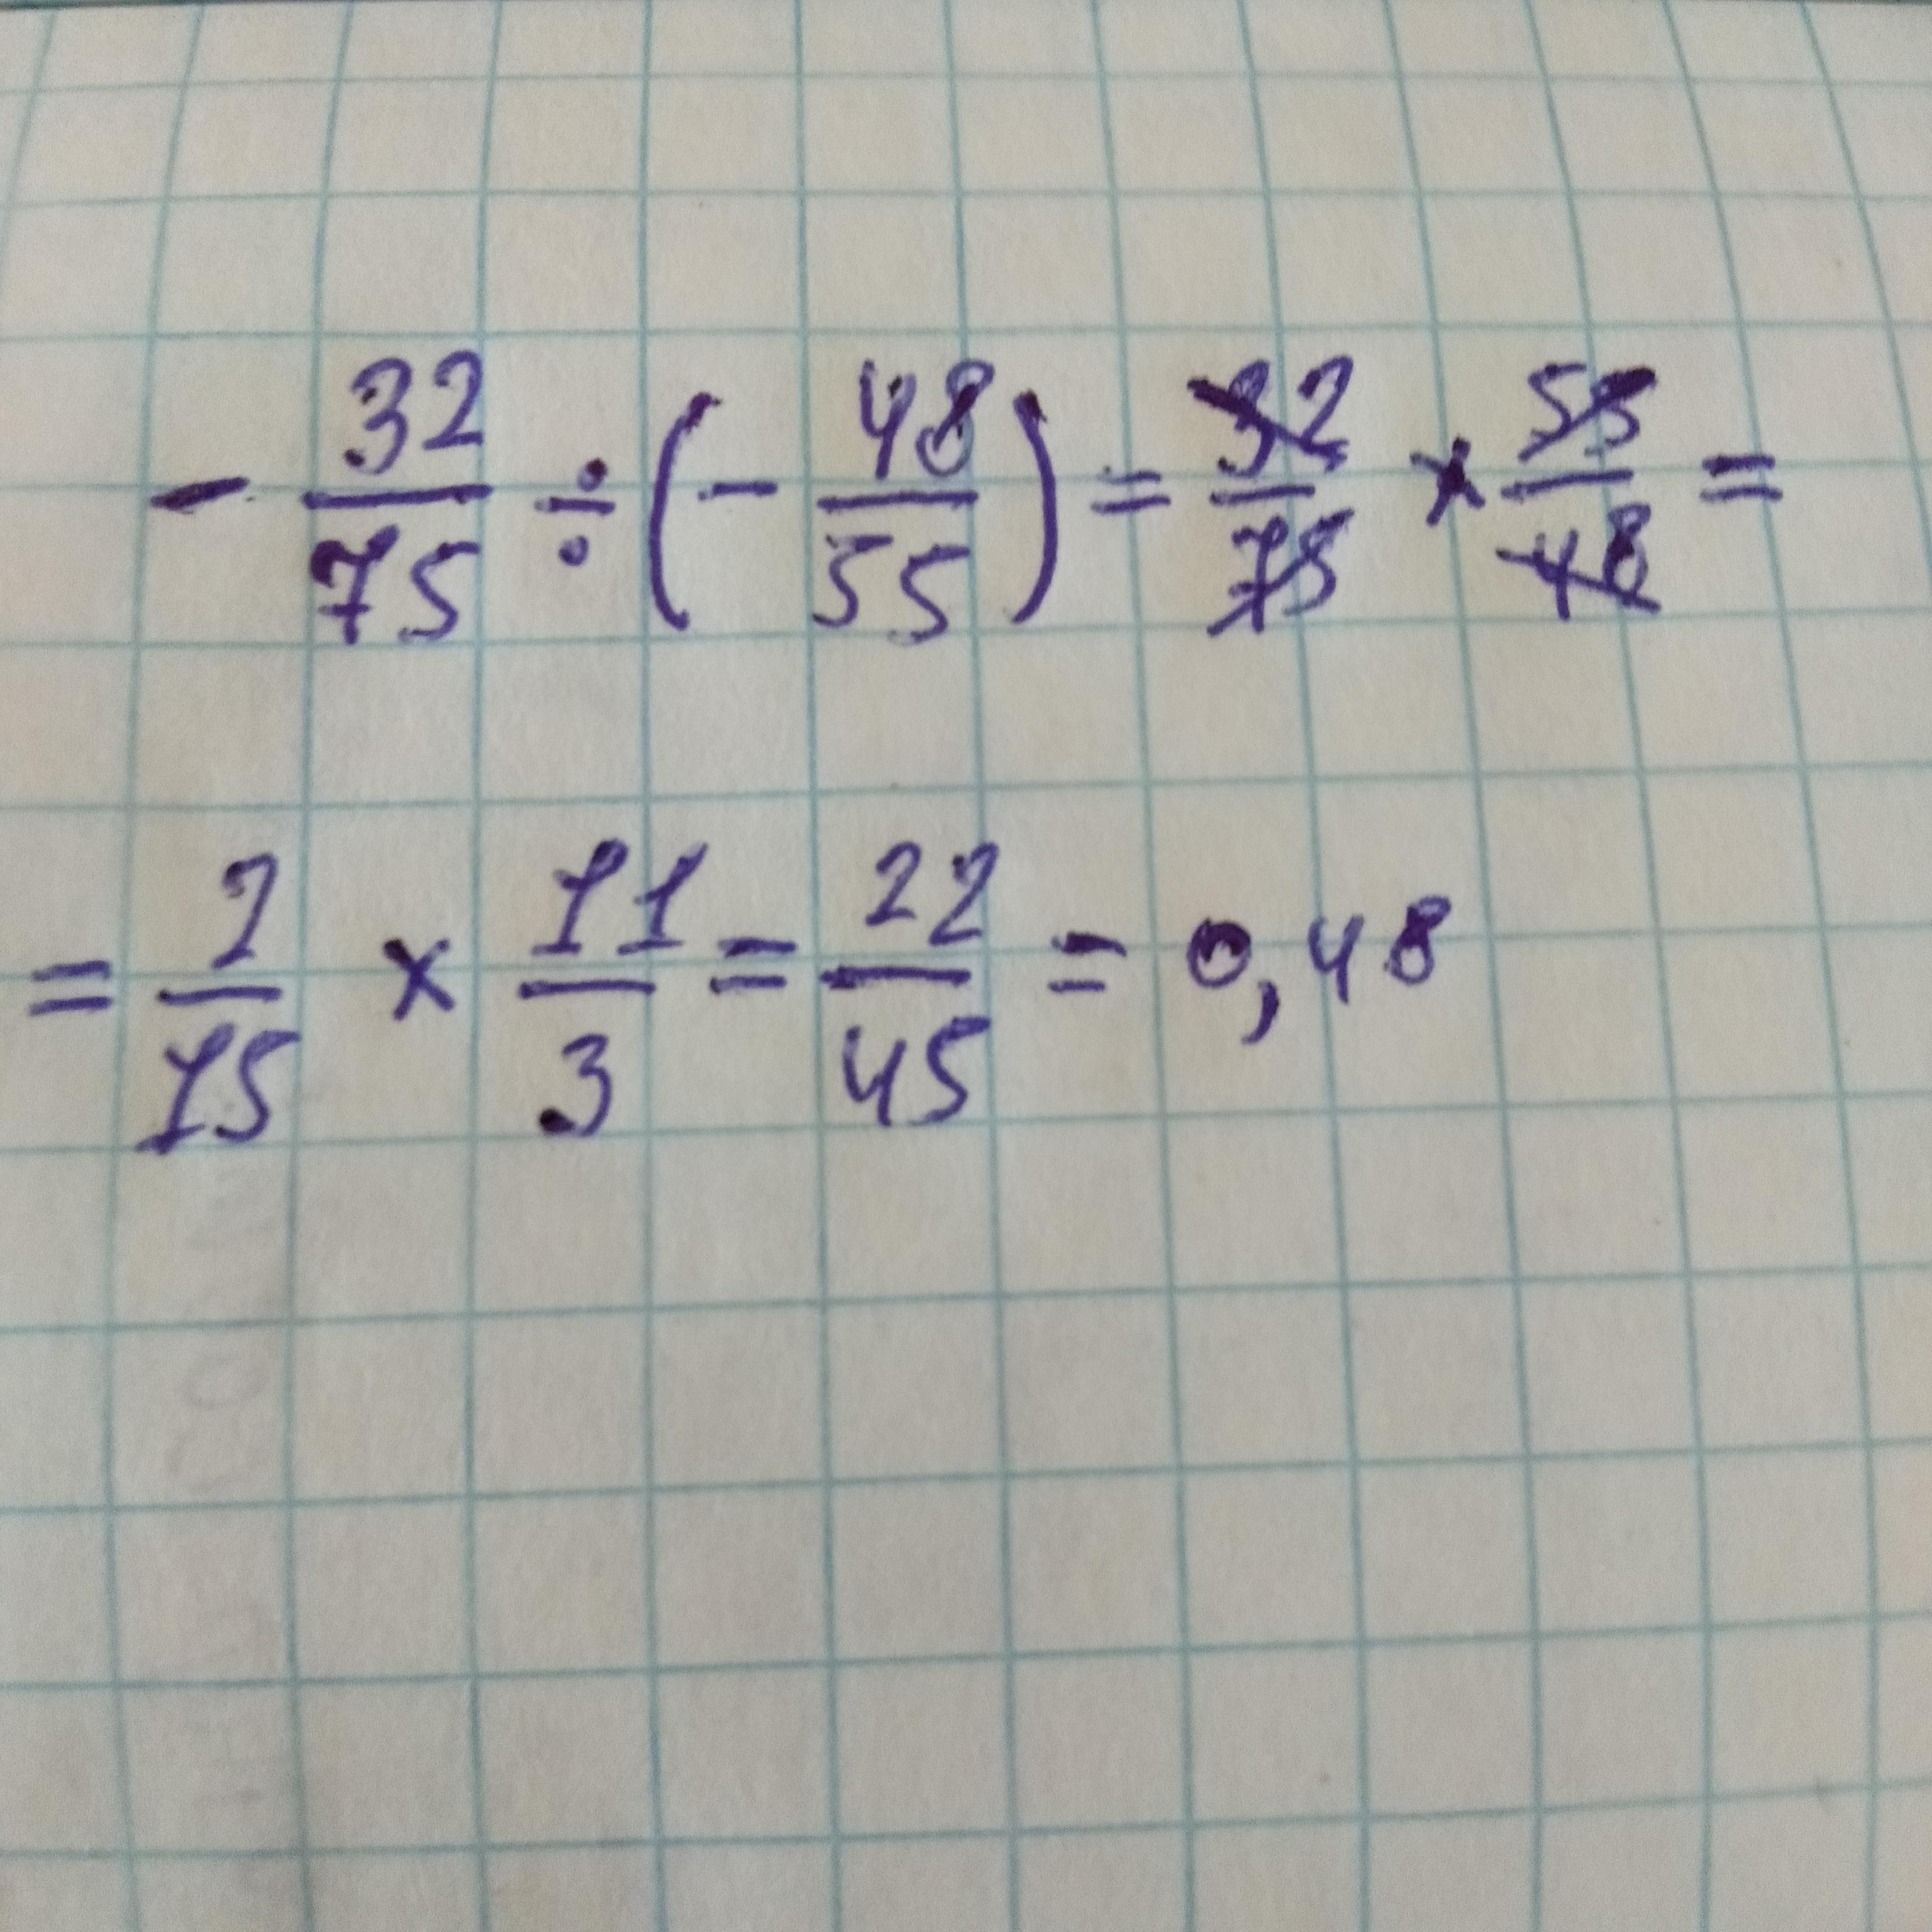 - 32/75 ÷ (- 48/55) = 32/75 × 55/48 =
= 2/15 × 11/3 = 22/45 = 0,48